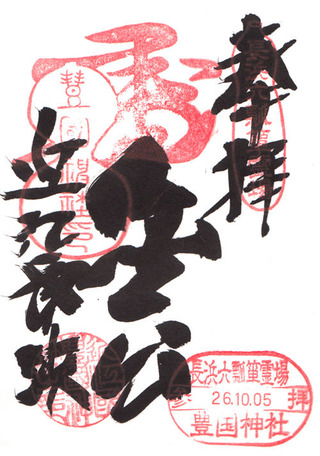 奉拝
秀吉公
近江長浜
長浜六瓢箪霊場
参 26.10.05 拝
豊国神社